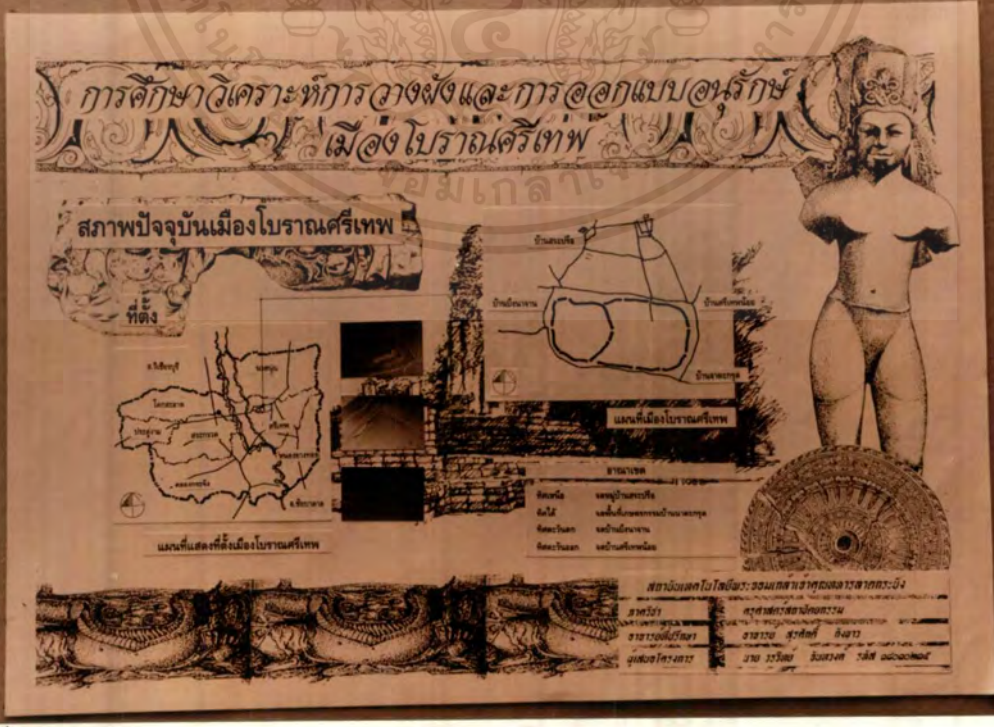 การศึกษาวิเคราะห์การวางผังและการออกแบบอนุรักษ์
เมืองโบราณศรีเทพ
สภาพปัจจุบันเมืองโบราณศรีเทพ
ที่ตั้ง
อ.วิเชียรบุรี
โคกสะอาด
ประดู่งาม
สระกรวด
ศรีเทพ
คลองกระจัง
อ.ชัยบาดาล
แผนที่แสดงที่ตั้งเมืองโบราณศรีเทพ
บ้านสระปรือ
บ้านบึงนาจาน
บ้านศรีเทพน้อย
บ้านนาตะกรุด
แผนที่เมืองโบราณศรีเทพ
อาณาเขต
ทิศเหนือ จดหมู่บ้านสระปรือ
ทิศใต้ จดพื้นที่เกษตรกรรมบ้านนาตะกรุด
ทิศตะวันตก จดบ้านบึงนาจาน
ทิศตะวันออก จดบ้านศรีเทพน้อย
สถาบันเทคโนโลยีพระจอมเกล้าเจ้าคุณทหารลาดกระบัง
ภาควิชา ครุศาสตร์สถาปัตยกรรม
อาจารย์ที่ปรึกษา อาจารย์ สุรศักดิ์
ผู้เสนอโครงการ นาย รหัส